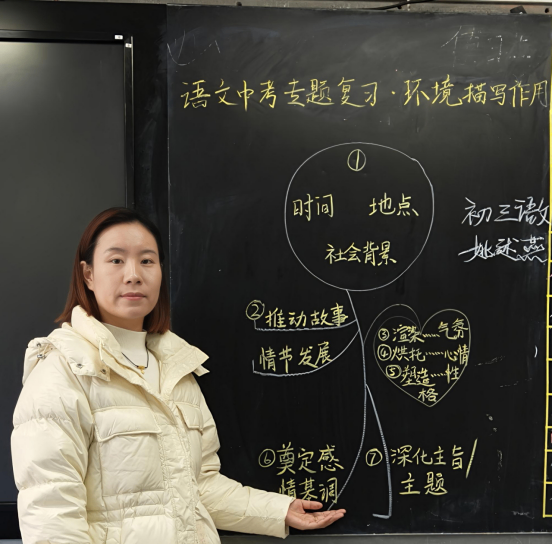 语文中考专题复习·环境描写作用
①
时间 地点
社会背景
初三语文
姚述燕
②推动故事
情节发展
③渲染……气氛
④烘托……心情
⑤塑造……性
格
⑥奠定感
情基调
⑦深化主旨/
主题